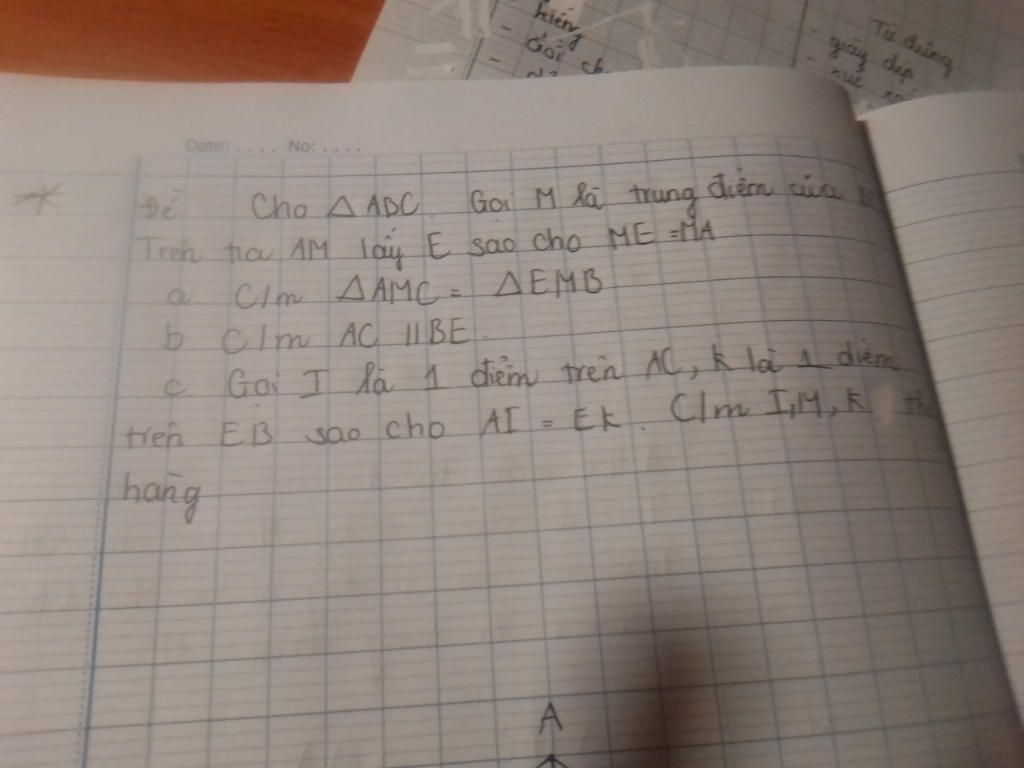 kiếng
- Gọi ch
Tu dưỡng
- giày dép
Date: .... No: ....
Đề Cho △ABC. Gọi M là trung điểm của
Trên tia AM lấy E sao cho ME=MA
a. C/m △AMC = △EMB
b C/m AC // BE.
c. Gọi I là 1 điểm trên AC, K là 1 điểm
trên EB sao cho AI = EK. C/m I, M, K
hàng
A